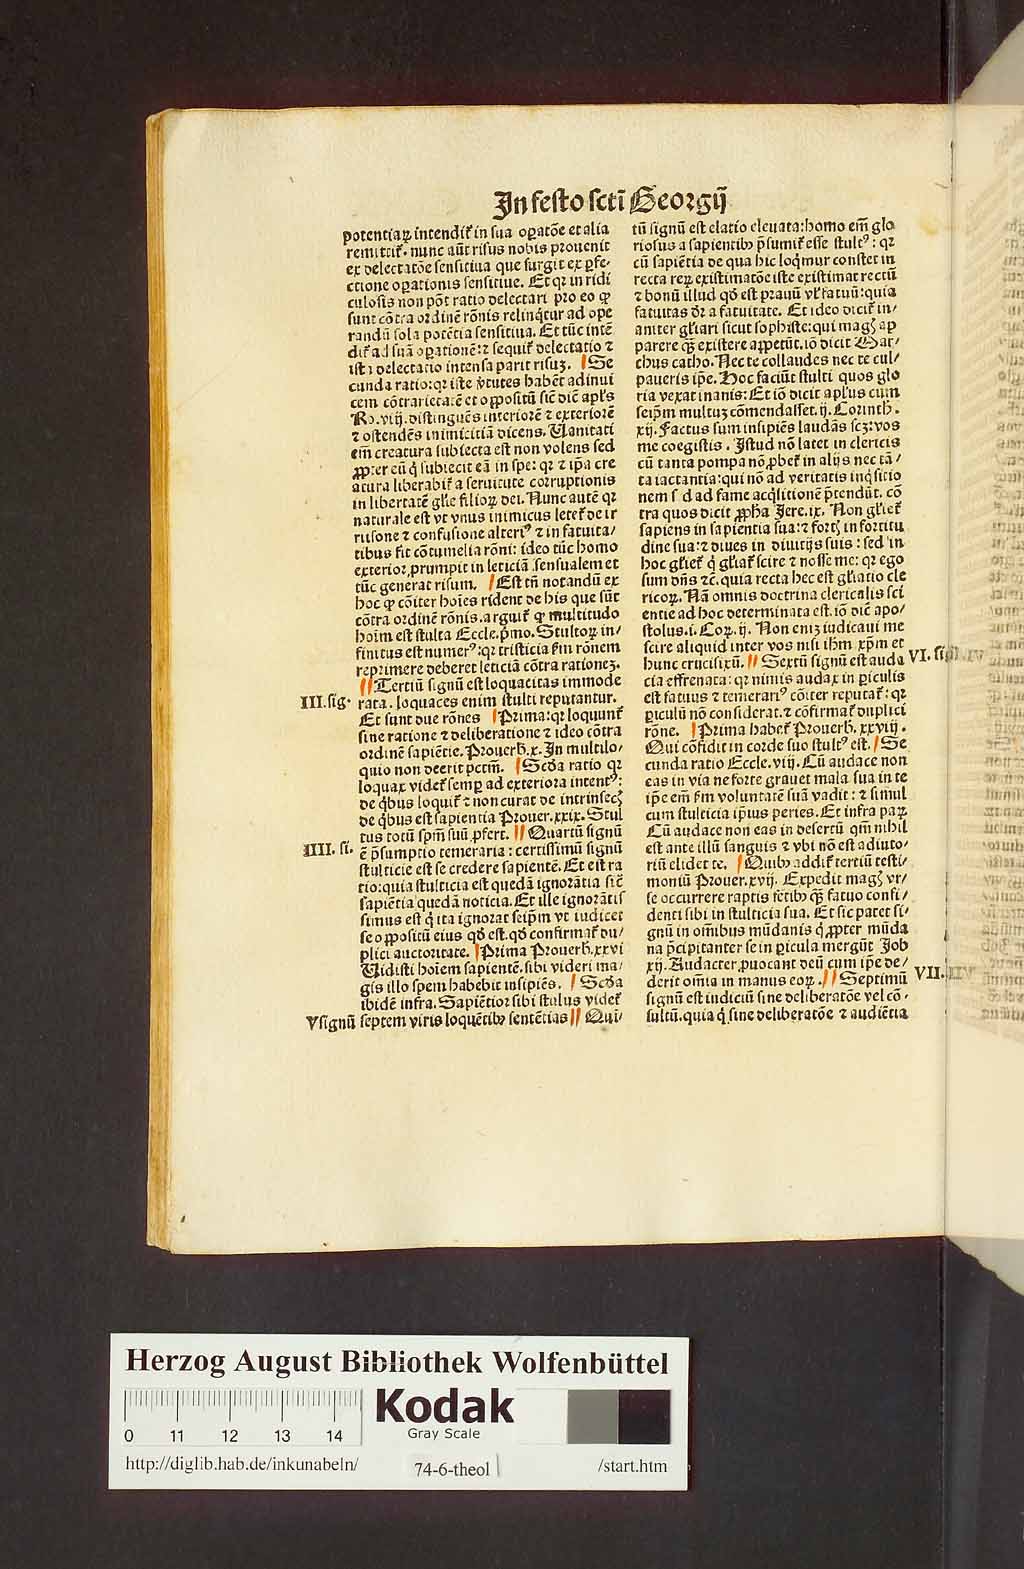 In festo scti Georgij
potentiaꝝ intendit̃ in sua oꝑatõe et alia
remittit̃. nunc aũt risus nobis prouenit
ex delectatõe sensitiua que surgit ex ꝑfe⸗
ctione oꝑationis sensitiue. Et qꝛ in ridi
culosis non põt ratio delectari pro eo ꝙ
sunt cõtra ordinẽ rõnis relinq̃tur ad ope
randũ sola potẽtia sensitiua. Et tũc intẽ
dit̃ ad suã oꝑationẽ: ⁊ sequit̃ delectatio ⁊
ista delectatio intensa parit risuꝫ. Se
cunda ratio: qꝛ iste v̓tutes habẽt adinui
cem cõtrarietatẽ et oppositũ sic̃ dic̃ apl̓s
Ro. viij. distinguẽs interiorẽ ⁊ exteriorẽ
⁊ ostendẽs inimicitiã dicens. Uanitati
em̃ creatura subiecta est non volens sed
ꝓpter eũ q̓ subiecit eã in spe: qꝛ ⁊ ip̃a cre
atura liberabit̃ a seruitute corruptionis
in libertatẽ gl̓ie filioꝝ dei. Nunc autẽ qꝛ
naturale est vt vnus inimicus letet̃ de ir
risione ⁊ confusione alteriꝰ ⁊ in fatuita/
tibus fit cõtumelia rõni: ideo tũc homo
exterior ꝓrumpit in leticiã sensualem et
tũc generat risum. Est tñ notandũ ex
hoc ꝙ cõiter hoĩes rident de his que sũt
cõtra ordinẽ rõnis. arguit̃ ꝙ multitudo
hoĩm est stulta Eccle. p̃mo. Stultoꝝ in/
finitus est numerꝰ: qꝛ tristicia ẜm rõnem
reprimere deberet leticiã cõtra rationeꝫ.
III. sig. Tertiũ signũ est loquacitas immode
rata. loquaces enim stulti reputantur.
Et sunt due rõnes Prima: qꝛ loquunt̃
sine ratione ⁊ deliberatione ⁊ ideo cõtra
ordinẽ sapiẽtie. Prouerb̃. x. In multilo/
quio non deerit pctm̃. Scd̓a ratio qꝛ
loquax videt̃ semꝑ ad exteriora intentꝰ:
de q̓bus loquit̃ ⁊ non curat de intrinsecꝭ
de q̓bus est sapientia Prouer. xxix. Stul
tus totũ spm̃ suũ ꝓfert. Quartũ signũ
IIII. si. ẽ p̃sumptio temeraria: certissimũ signũ
stulticie est se credere sapientẽ. Et est ra
tio: quia stulticia est quedã ignorãtia sic̃
sapiẽtia quedã noticia. Et ille ignorãtis
simus est q̓ ita ignorat seip̃m vt iudicet
se oppositũ eius qđ est. qđ confirmat̃ du/
plici auctoritate. Prima Prouerb̃. xxvi
Uidisti hoĩem sapientẽ. sibi videri ma/
gis illo spem habebit insipiẽs. Scd̓a
ibidẽ infra. Sapiẽtior sibi stulus videt̃
V signũ septem viris loquẽtibꝰ sentẽtias Qui⸗
tũ signũ est elatio eleuata: homo em̃ glo
riosus a sapientibꝰ p̃sumit̃ esse stultꝰ: qꝛ
cũ sapiẽtia de qua hic loq̓mur constet in
recta reꝝ existimatõe iste existimat rectũ
⁊ bonũ illud qđ est prauũ vl̓ fatuũ: quia
fatuitas dꝛ a fatuitate. Et ideo dicit̃ in/
aniter gl̓iari sicut sophiste: qui magꝭ ap
parere qꝫ existere appetũt. iõ dicit Mar/
chus catho. Nec te collaudes nec te cul/
paueris ip̃e. Hoc faciũt stulti quos glo
ria vexat inanis: Et iõ dicit apl̓us cum
seip̃m multuꝫ cõmendasset. ij. Corinth̃.
xij. Factus sum insipiẽs laudãs scꝫ: vos
me coegistis. Istud nõ latet in clericis
cũ tanta pompa nõ ꝓbet̃ in alijs nec tã/
ta iactantia: qui nõ ad veritatis inq̓sitio
nem s d ad fame acq̓sitionẽ p̃tendũt. cõ
tra quos dicit ꝓpha Jere. ix. Non gl̓iet̃
sapiens in sapientia sua: ⁊ fortꝭ in fortitu
dine sua: ⁊ diues in diuitijs suis: sed in
hoc gl̓iet̃ q̓ gl̓iat̃ scire ⁊ nosse me: qꝛ ego
sum dñs ⁊c̃. quia recta hec est gl̓iatio cle
ricoꝝ. Nã omnis doctrina clericalis sci
entie ad hoc determinata est. iõ dic̃ apo/
stolus. i. Coꝝ. ij. Non eniꝫ iudicaui me
scire aliquid inter vos nisi ihm̃ xp̃m et
hunc crucifixũ. Sextũ signũ est auda VI. sig
cia effrenata: qꝛ nimis audax in ꝑiculis
est fatuus ⁊ temerariꝰ cõiter reputat̃: qꝛ
ꝑiculũ nõ considerat. ⁊ cõfirmat̃ duplici
rõne. Prima habet̃ Prouerb̃. xxviij.
Qui cõfidit in corde suo stultꝰ est. Se
cunda ratio Eccle. viij. Cũ audace non
eas in via ne forte grauet mala sua in te
ip̃e em̃ ẜm voluntatẽ suã vadit: ⁊ simul
cum stulticia ip̃ius peries. Et infra paꝝ
Cũ audace non eas in desertũ qm̃ nihil
est ante illũ sanguis ⁊ vbi nõ est adiuto/
riũ elidet te. Quibꝰ addit̃ tertiũ testi/
moniũ Prouer. xvij. Expedit magꝭ vr/
se occurrere raptis fetibꝰ qꝫ fatuo confi/
denti sibi in stulticia sua. Et sic patet si⸗
gnũ in om̃ibus mũdanis q̓ ꝓpter mũda
na p̃cipitanter se in ꝑicula mergũt Job
xij. Audacter ꝓuocant deũ cum ip̃e de/
derit om̃ia in manus eoꝝ. Septimũ VII.
signũ est indiciũ sine deliberatõe vel cõ⸗
sultũ. quia q̓ sine deliberatõe ⁊ audiẽtia
Herzog August Bibliothek Wolfenbüttel
Kodak
Gray Scale
0 11 12 13 14
http://diglib.hab.de/inkunabeln/ 74-6-theol /start.htm